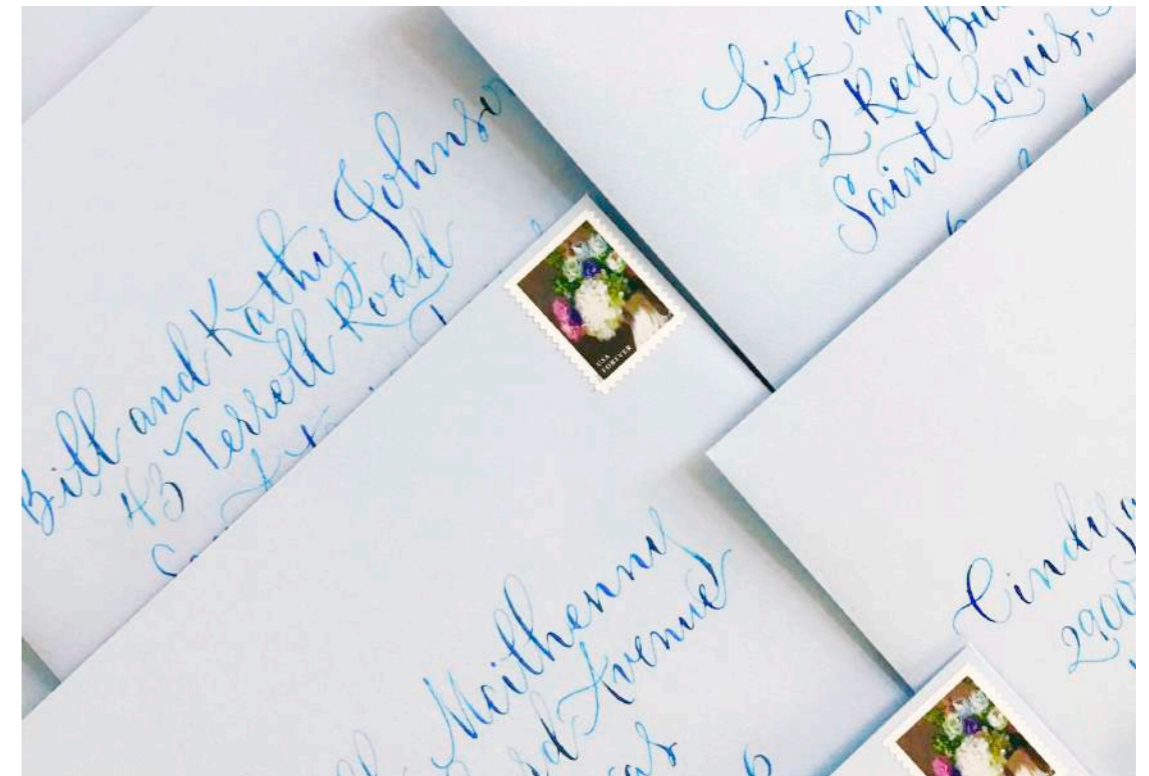 Bill and Kathy Johnso
43 Terrell Road
Liz
2 Red
Saint Louis,
USA
FOREVER
McIlhenny
Avenue
Cindy
2900